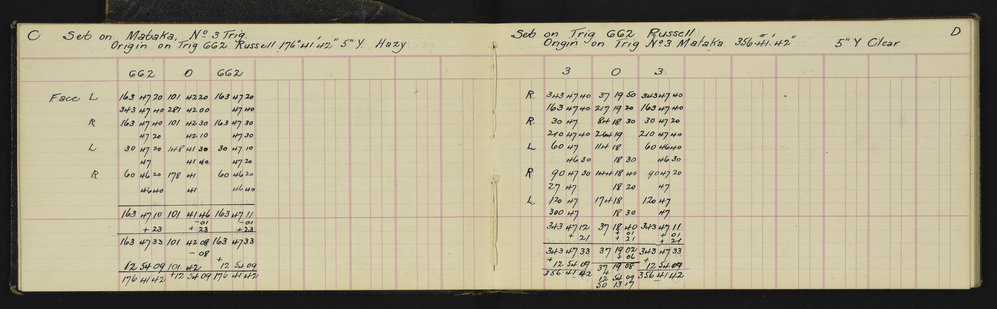 C Set on Mataka, No 3 Trig.
Origin on Trig 662 Russell 176° 41' 42" 5" Y. Hazy
662 0 662
Face L 163 47 20 101 42 20 163 47 20
343 47 40 281 42 00 47 40
R 163 47 40 101 42 30 163 47 30
47 20 42 10 47 30
L 30 47 20 148 41 30 30 47 10
47 41 40 47 20
R 60 46 20 178 41 60 46 20
46 40 41 46 40
163 47 10 101 41 46 163 47 11
-01 -01
+ 23 + 23 + 23
163 47 33 101 42 08 163 47 33
- 08 +
12 54 09 101 42 12 54 09
176 41 42 +12 54 09 176 41 42
Set on Trig 662 Russell D
Origin on Trig No 3 Mataka 356° 41' 42" 5" Y Clear
3 0 3
R. 343 47 40 37 19 50 343 47 40
163 47 40 217 19 20 163 47 40
R 30 47 84 18 30 30 47 20
210 47 40 264 19 210 47 40
L 60 47 114 18 60 46 40
46 30 18 30 46 30
R 90 47 30 144 18 40 90 47 20
27 47 18 20 47
L 120 47 174 18 120 47
300 47 18 30 47
343 47 12 37 18 40 343 47 11
+ 01 + 01
+ 21 + 21 + 21
343 47 33 37 19 02 343 47 33
+ + 06 +
12 54 09 37 19 08 12 54 09
356 41 42 + 12 54 09 356 41 42
50 13 17